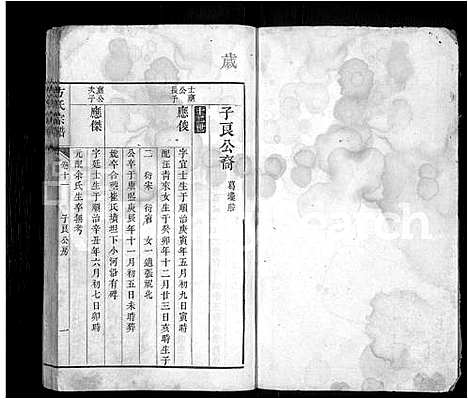 歲
子良公裔
葛塘房
士應公長子
應俊
字宜士生于順治庚寅年五月初九日寅時
配汪青求女生于癸卯年十二月廿三日亥時生子
二 衍宋 衍 女一適張 北
公卒于康熙庚辰年十一月初五日未時葬
卒合 崔氏墳坦下小河沿有碑
應公次子
應傑
字廷士生于順治辛丑年六月初七日卯時
元配余氏生卒無考
方氏宗譜
卷十一
子良公房
一